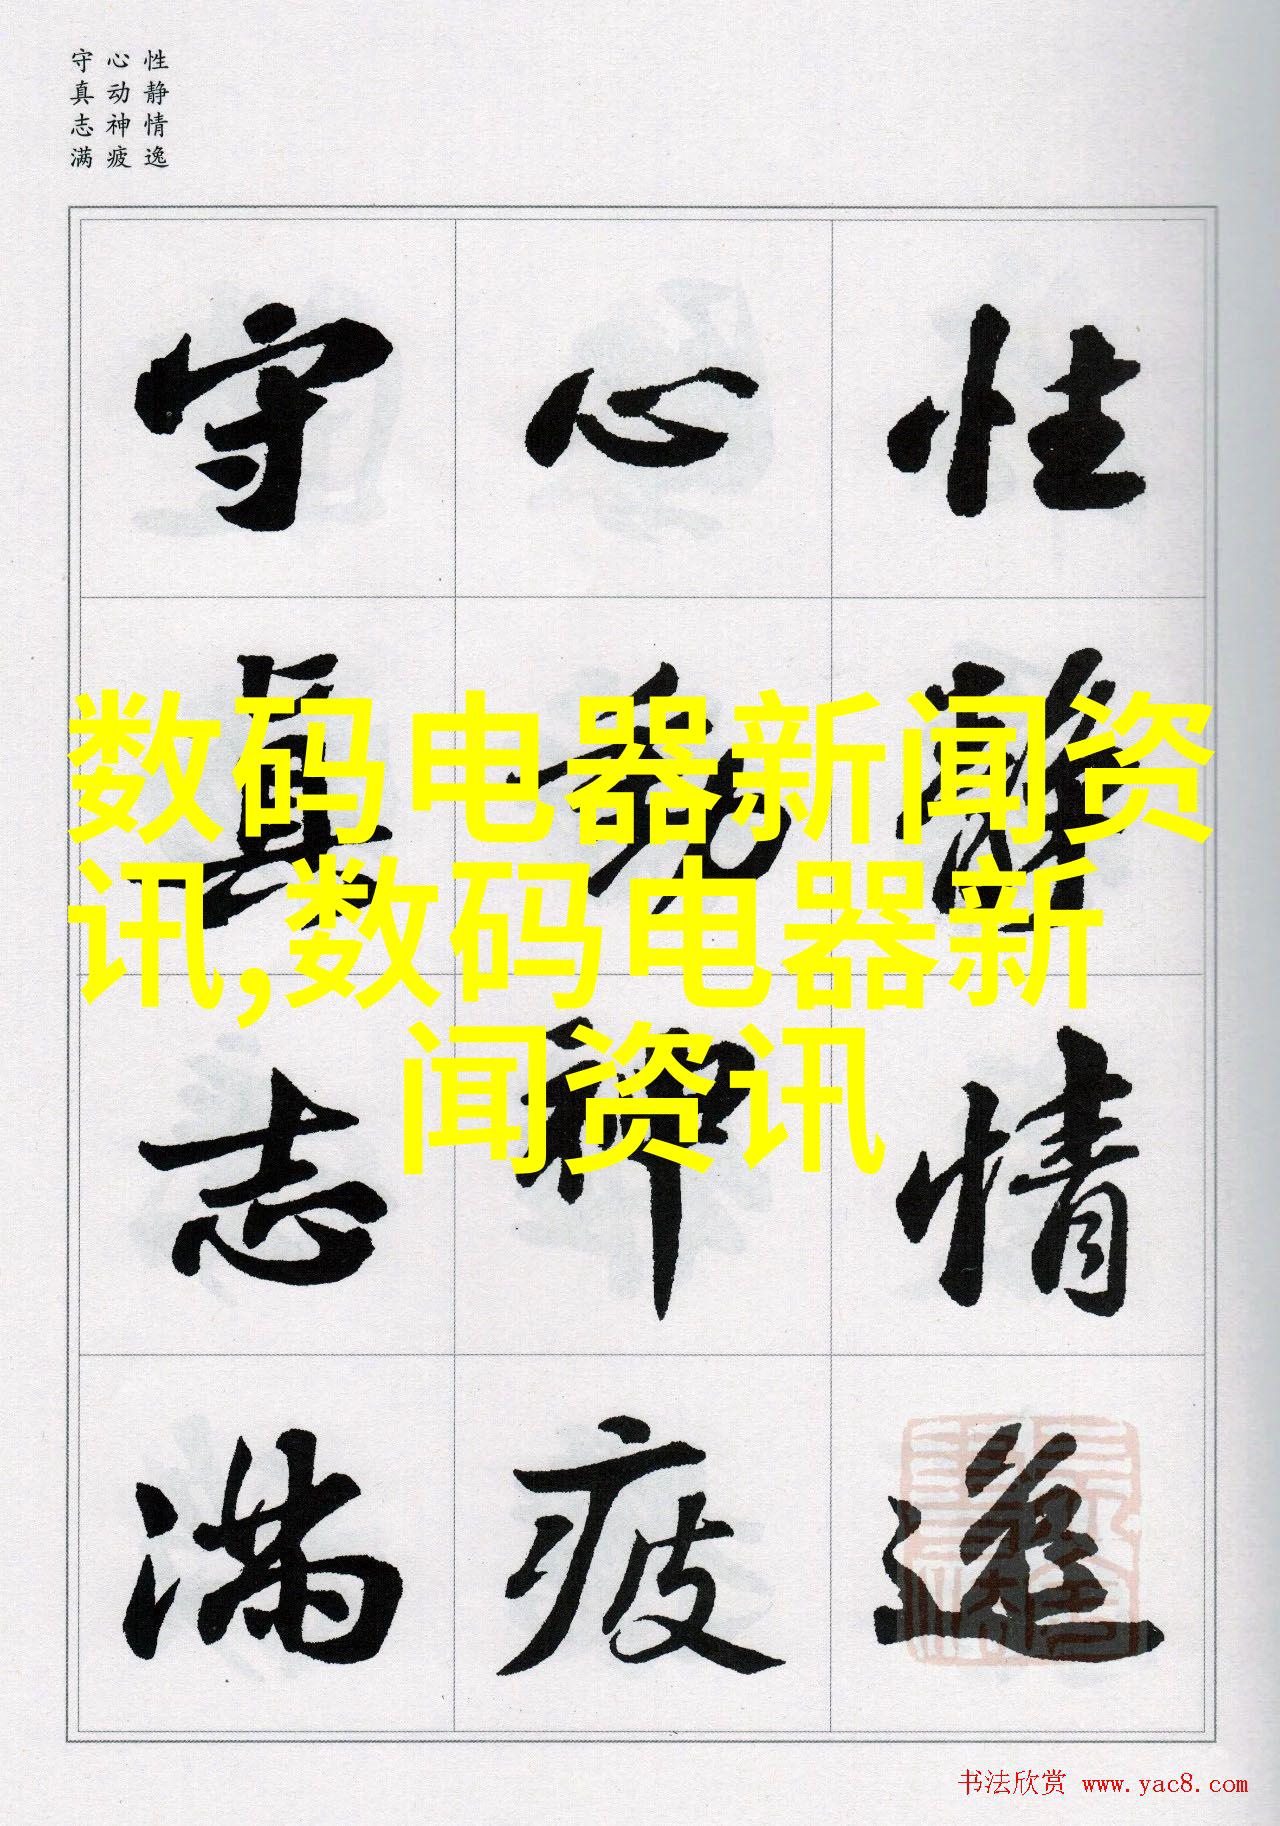 性静情逸
心动神疲
守真志满
性静情逸
心动神疲
守真志满
数码电器新闻资
讯,数码电器新
闻资讯
书法欣赏 www.yac8.com